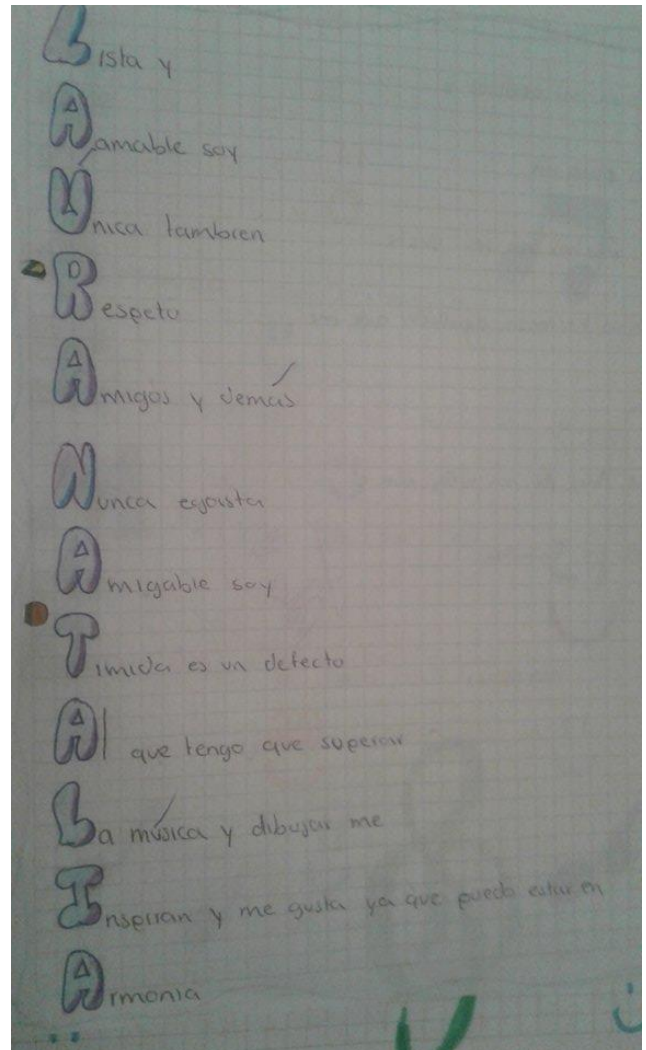 Lista y
Aamable soy
Única tambien
Respeto
Amigos y demás
Nunca egoista
Amigable soy
Timida es un defecto
Al que tengo que superar
La música y dibujar me
Inspiran y me gusta ya que puedo estar en
Armonia